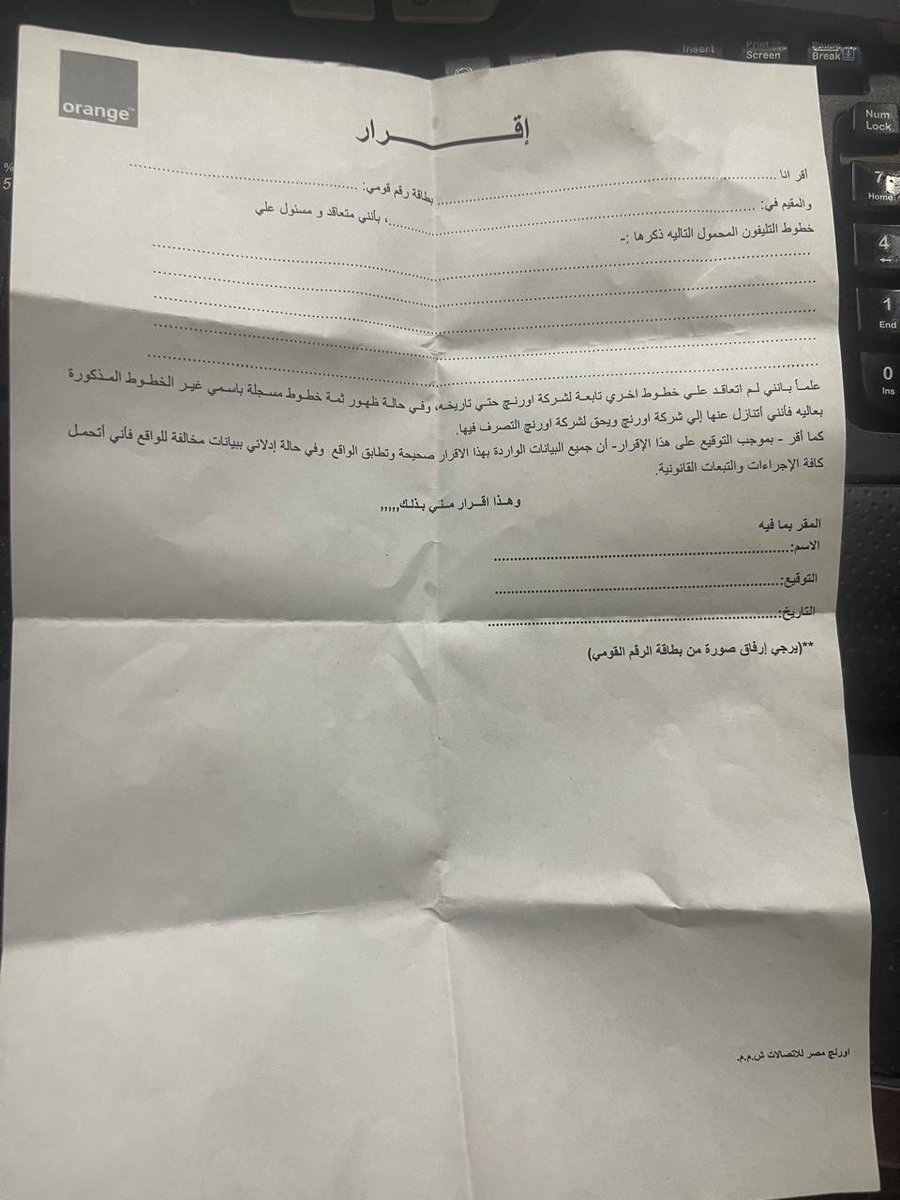 orange™
إقــــــــرار
أقر انا ........................ بطاقة رقم قومي: ........................
والمقيم في: ........................، بأنني متعاقد و مسئول علي
خطوط التليفون المحمول التاليه ذكرها :-
........................
........................
........................
........................
........................
علمـاً بـانني لـم اتعاقـد علـي خطـوط اخـري تابعـة لشـركة اورنـج حتـي تاريخـه، وفـي حالـة ظهـور ثمـة خطـوط مسـجلة باسـمي غيـر الخطـوط المـذكورة
بعاليه فأنني أتنازل عنها إلي شركة اورنج ويحق لشركة اورنج التصرف فيها.
كما أقر - بموجب التوقيع على هذا الإقرار- أن جميع البيانات الواردة بهذا الاقرار صحيحة وتطابق الواقع وفي حالة إدلاني ببيانات مخالفة للواقع فأني أتحمـل
كافة الإجراءات والتبعات القانونية.
وهـذا اقـرار منـي بـذلـك,,,,,
المقر بما فيه
الاسم:........................
التوقيع:........................
التاريخ:........................
**(يرجي إرفاق صورة من بطاقة الرقم القومي)
اورنج مصر للاتصالات ش.م.م.
Insert
Print Screen
Break
Num Lock
7
Home
4
←
1
End
0
Ins
%
5